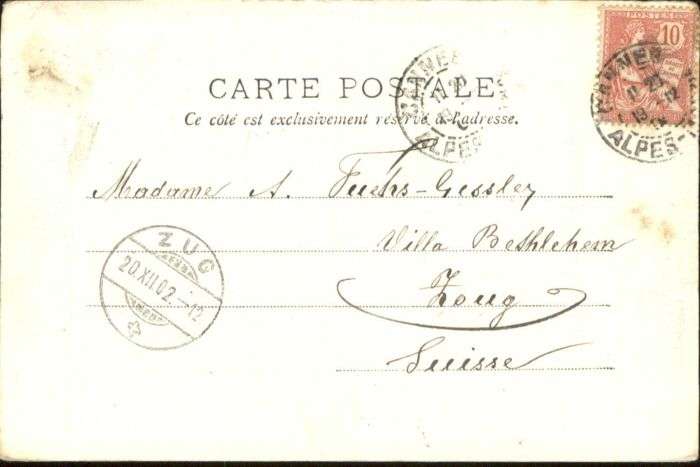 POSTES
10
CANNES
ALPES-
CANNES
ALPES-
CARTE POSTALE
Ce côté est exclusivement réservé à l'adresse.
Madame A. Fuchs-Gessler
Villa Bethlehem
Zoug
Suisse
ZUG
20.XII.02.-12